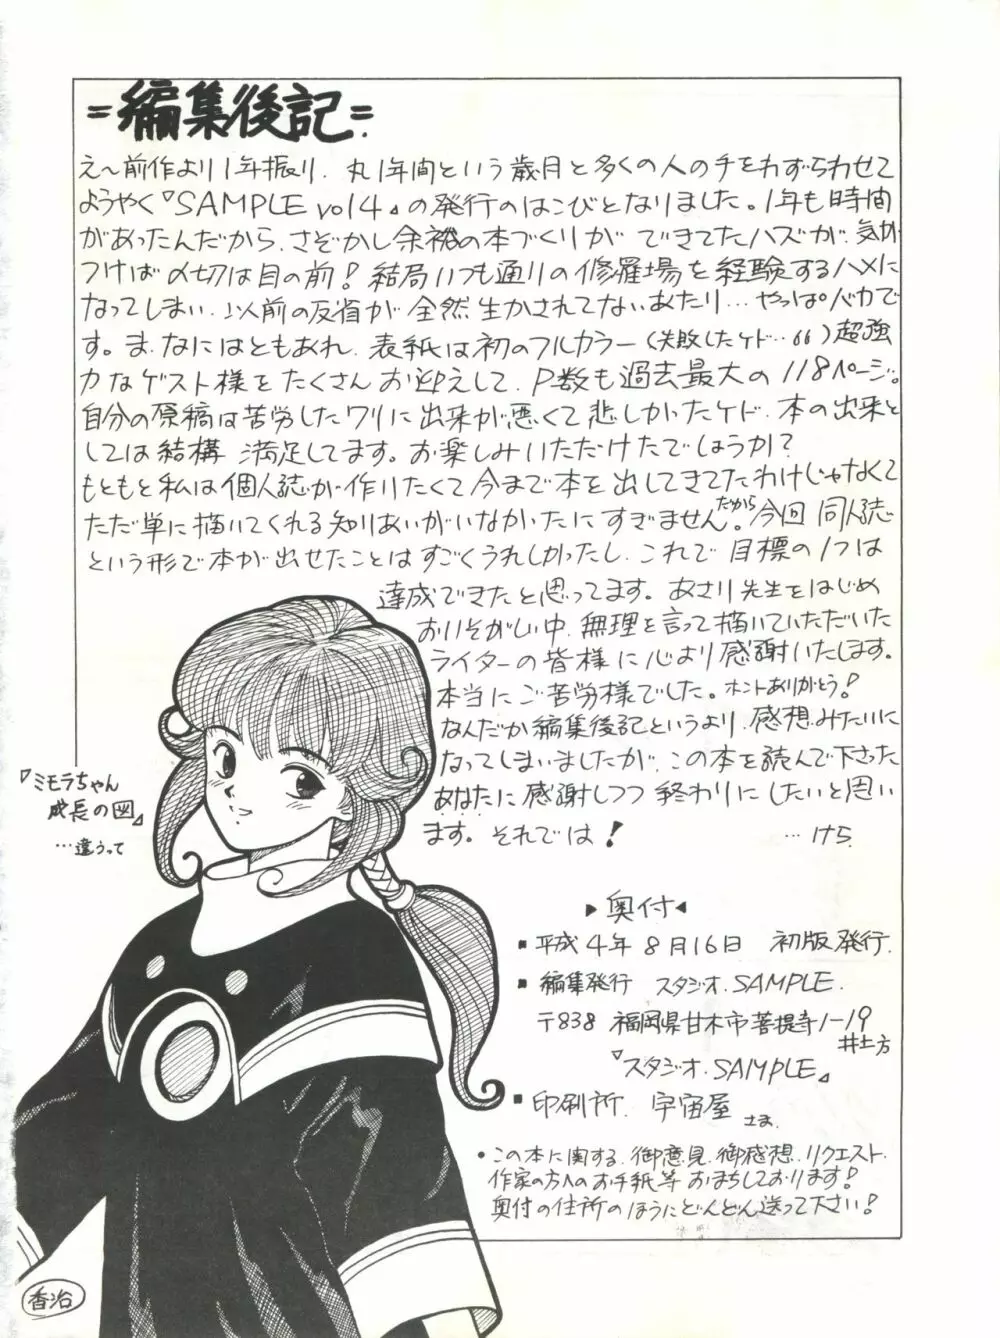 =編集後記=
え〜前作より1年振り、丸1年間という歳月と多くの人の手をわずらわせて
ようやく『SAMPLE vol4』の発行のはこびとなりました。1年も時間
があったんだから、さぞかし余裕の本づくりができてたハズが、気が
つけば〆切は目の前!結局いつも通りの修羅場を経験するハメに
なってしまい、以前の反省が全然生かされてないあたり…やっぱバカで
す。ま、なにはともあれ、表紙は初のフルカラー(失敗したケド…)超強
力なゲスト様をたくさんお迎えして、P数も過去最大の118ページ。
自分の原稿は苦労したワリに出来が悪くて悲しかったケド、本の出来と
しては結構満足してます。お楽しみいただけたでしょうか?
もともと私は個人誌が作りたくて今まで本を出してきてたわけじゃなくて
ただ単に描いてくれる知りあいがいなかったにすぎません。だから今回同人誌
という形で本が出せたことはすごくうれしかったし、これで目標の1つは
達成できたと思ってます。あさり先生をはじめ
おいそがしい中、無理を言って描いていただいた
ライターの皆様に心より感謝いたします。
本当にご苦労様でした。ホントありがとう!
なんだか編集後記というより、感想みたいに
なってしまいましたが、この本を読んで下さった
あなたに感謝しつつ終わりにしたいと思い
ます。それでは!
…けち
『ミモラちゃん
成長の図』
…違うって
▶奥付◀
■平成4年8月16日 初版発行.
■編集発行 スタジオ.SAMPLE.
〒838 福岡県甘木市菩提寺1-19
井上方
『スタジオ.SAMPLE』
■印刷所. 宇宙屋さま.
•この本に関する、御意見、御感想、リクエスト、
作家の方へのお手紙等おまちしております!
奥付の住所のほうにどんどん送って下さい!
香治